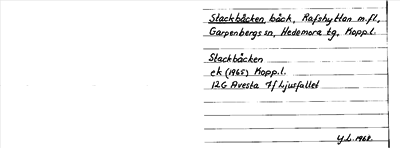 Stackbäcken, bäck, Rafshyttan m.fl.,
Garpenbergs sn, Hedemora tg, Kopp.l.
Stackbäcken
ek (1965) Kopp.l.
12G Avesta 7f Ljusfallet
Y.L. 1968.